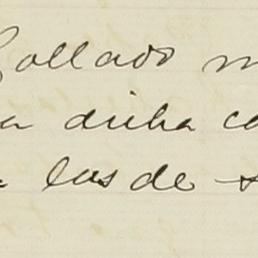 Collado m
a dicha co
las de s